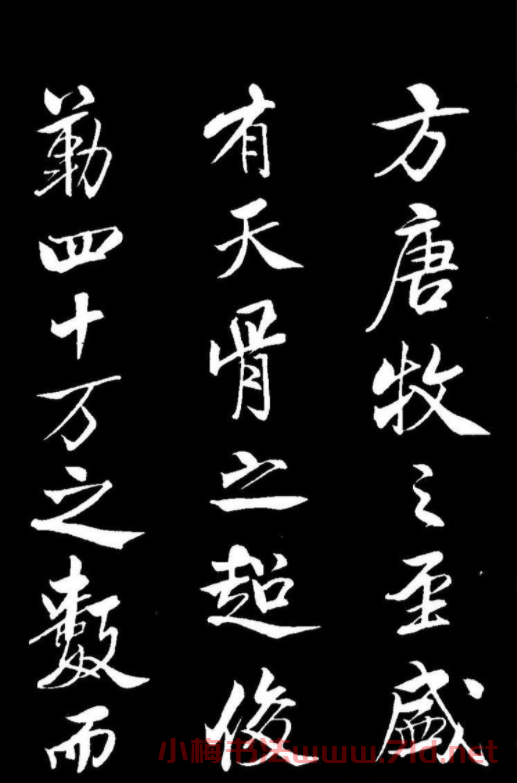 方唐牧之至盛
有天骨之超俊
勒四十万之数而
小梅书法www.7ld.net